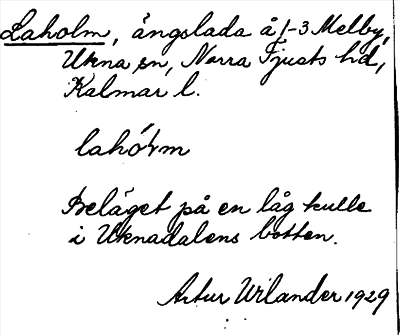 Laholm, ängslada å 1-3 Melby,
Ukna sn, Norra Tjusts hd,
Kalmar l.
lahó̀łm
Beläget på en låg kulle
i Uknadalens botten.
Artur Wilander 1929